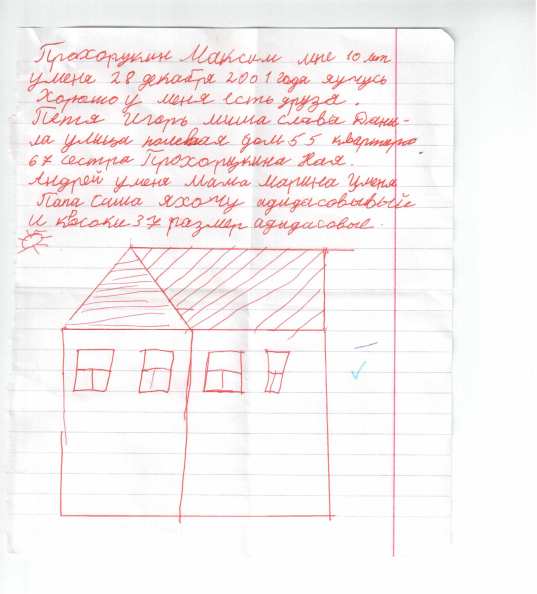 Прохорукин Максим мне 10 лет
у меня 28 декабря 2001 года я учусь
Хорошо у меня есть друза.
Петя Игорь миша слава Дани-
ла улица полевая дом 55 квартира
67 сестра Прохорукина Ная.
Андрей у меня Мама Марина Уменя
Папа Саша яхочу адидасовывый
и квсоки 37 размер адидасовые.